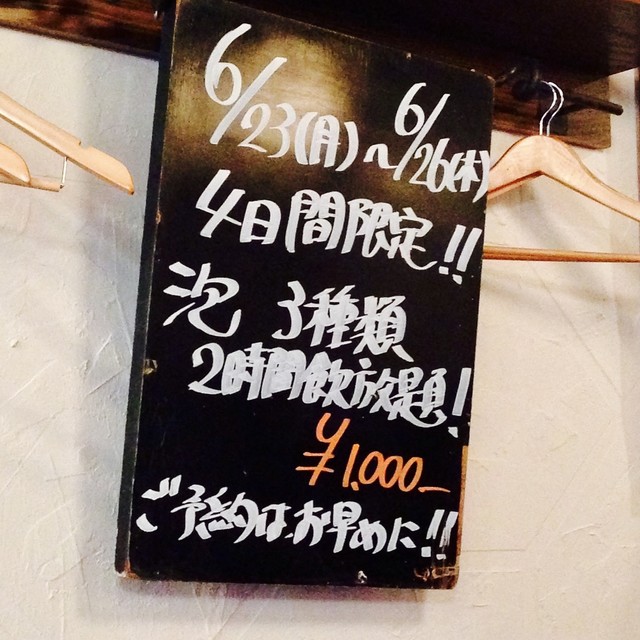 6/23(月)〜6/26(木)
4日間限定!!
泡 3種類
2時間飲放題!
¥1,000-
ご予約はお早めに!!